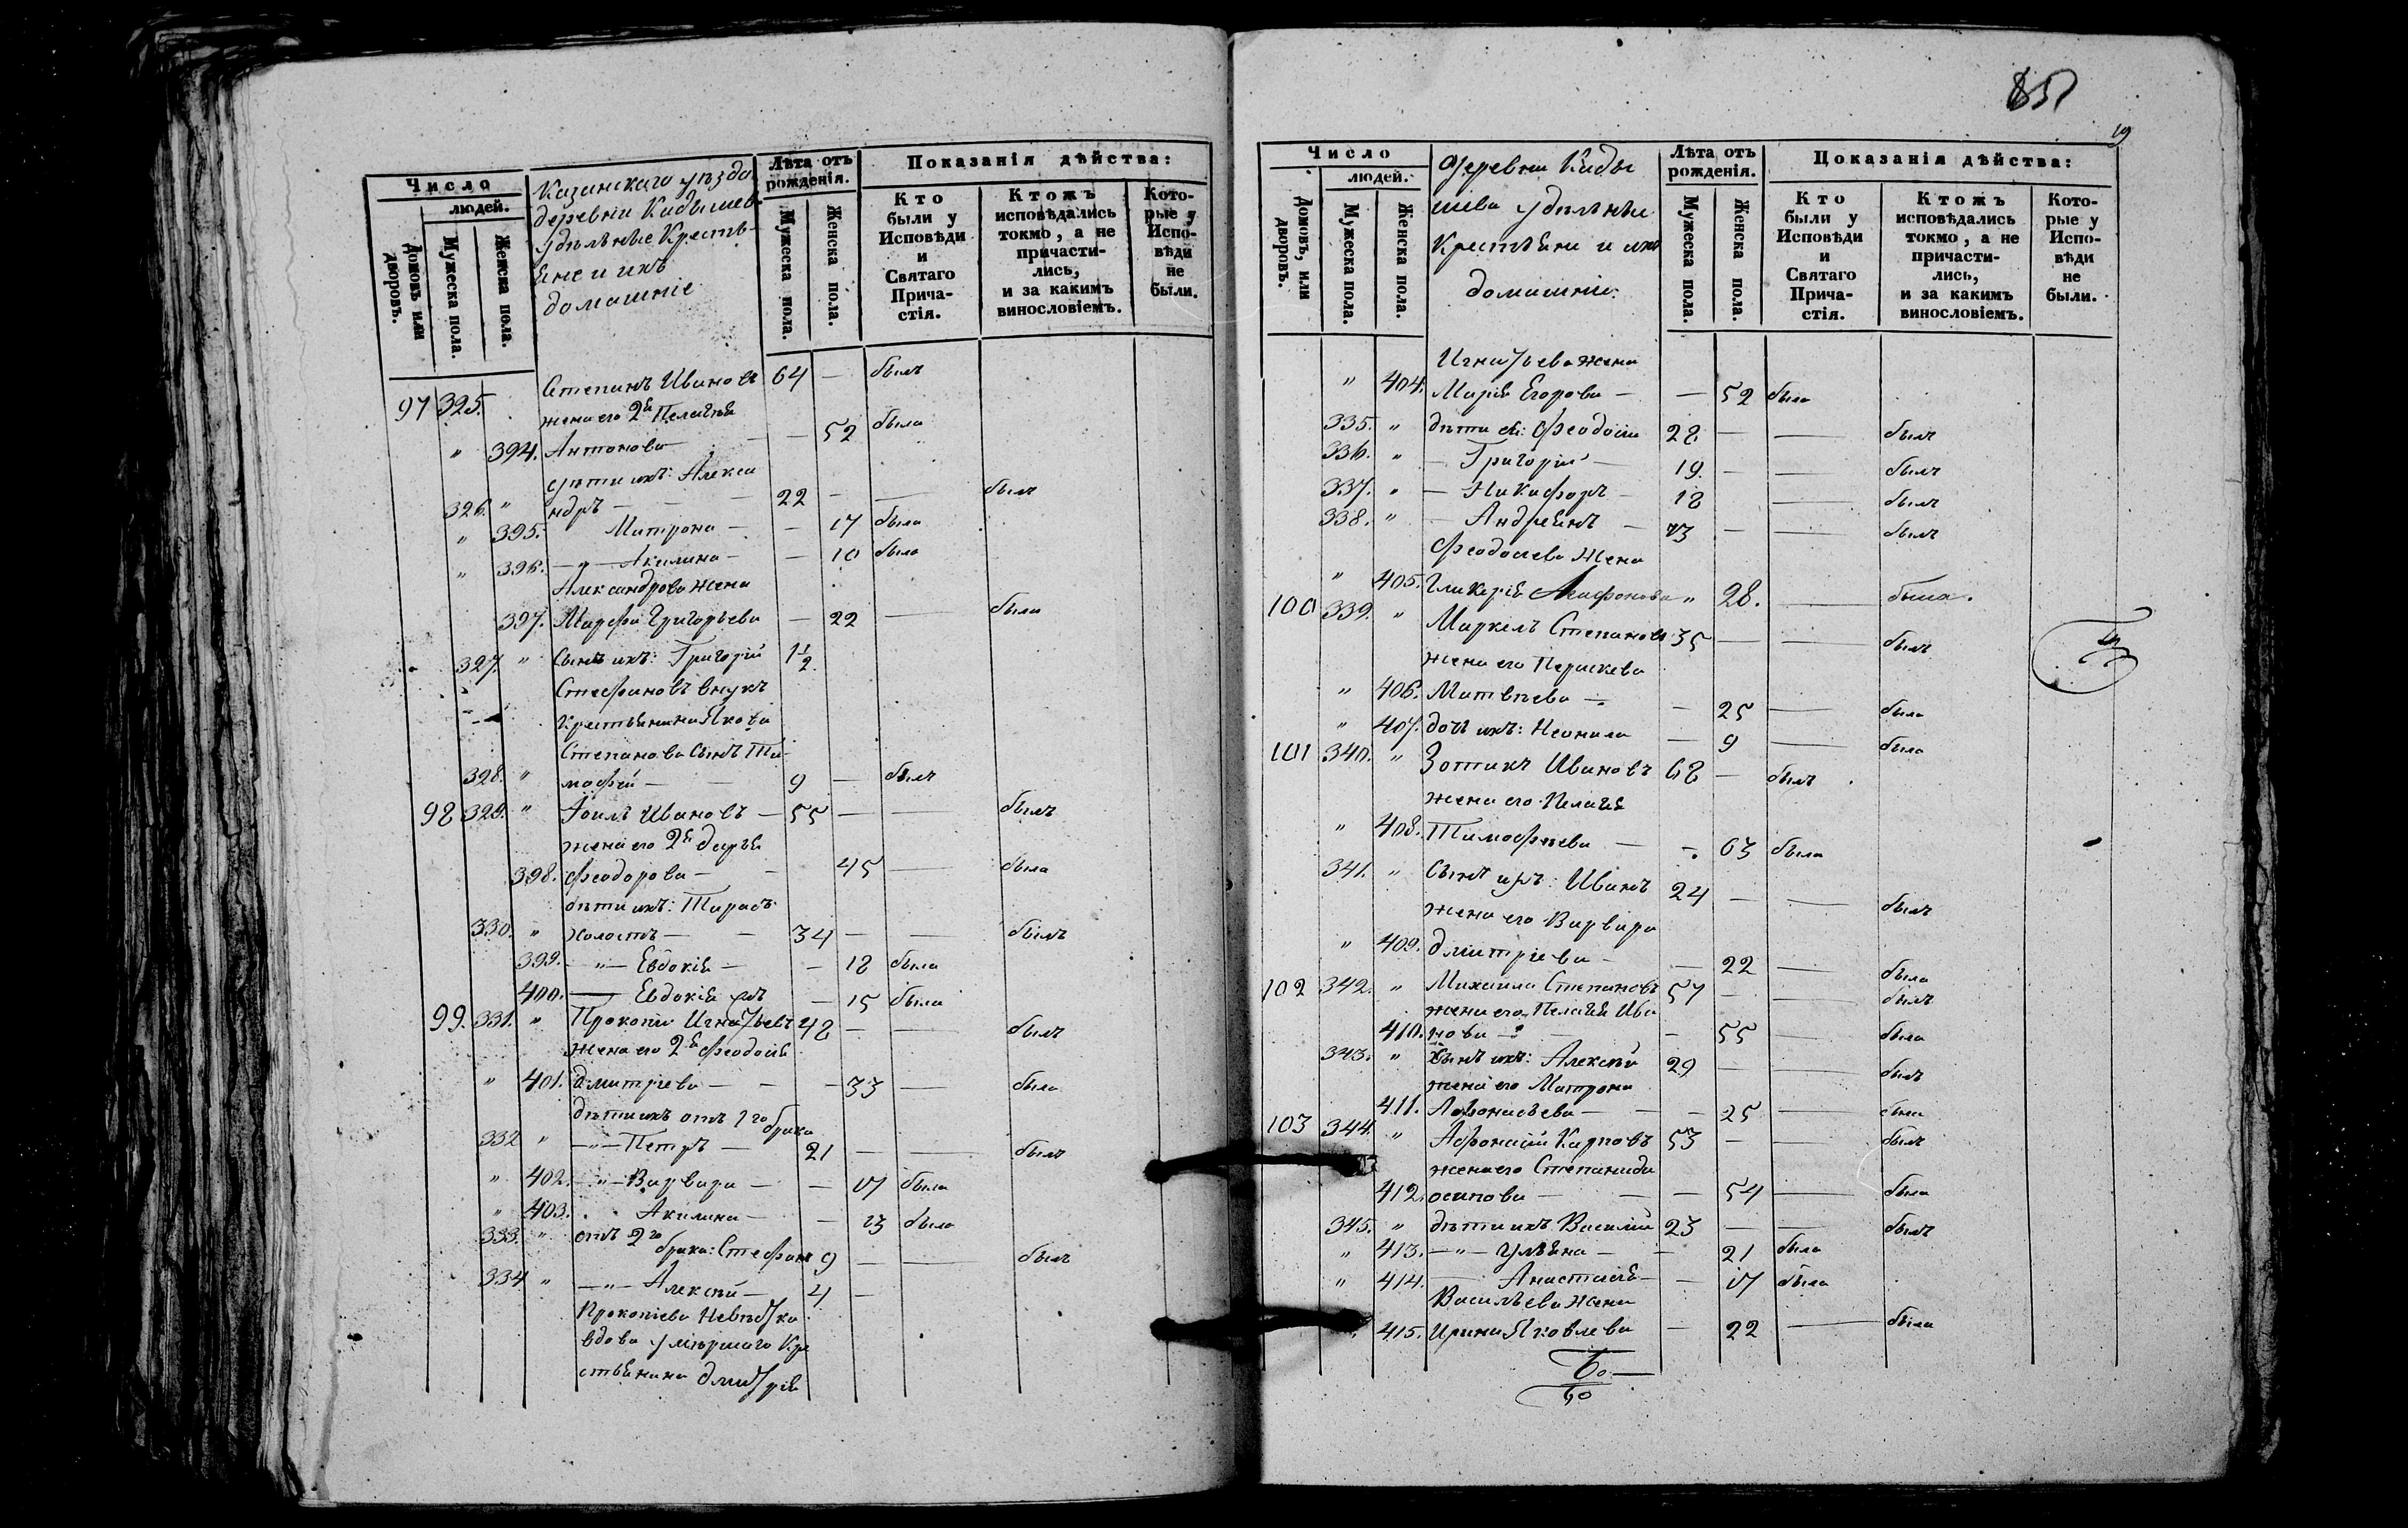 Число
людей.
Домовъ или дворовъ.
Мужеска пола.
Женска пола.
Казанскаго уѣзда
деревни Кадышев
удѣльные Кресть-
яне и ихъ
домашніе
Лѣта отъ рожденія.
Мужеска пола.
Женска пола.
Показанія дѣйства:
Кто были у Исповѣди и Святаго Прича- стія.
Ктожъ исповѣдались токмо, а не причасти- лись, и за какимъ винословіемъ.
Кото- рые у Испо- вѣди не были.
97 325. Степанъ Ивановъ 64 — былъ
жена его 2я Пелагѣя
" 394. Антонова — — 52 была
дѣти ихъ: Алекса
326. " ндръ — — 22 — — былъ
" 395. Матрона — — 17 была
" 396. — " — Акилина — — 10 была
Александрова жена
397. Марфа Григорьева — 22 — была
327. " Сынъ ихъ: Григорій 1 1/2
Стефановъ внукъ
Крестьянина Якова
Степанова сынъ Ти-
328. " мофей — — 9 — былъ
98 329. " Іоилъ Ивановъ — 55 — — былъ
жена его 2я Дарья
398. Феодорова — — 45 — была
дѣти ихъ: Тарасъ
330. " холостъ — — 34 — — былъ
399. — " — Евдокія — — 18 была
400. — Евдокія — 15 была
99. 331. " Прокопи Игнатьевъ 48 — — былъ
жена его 2я Феодосія
" 401. Дмитріева — — — 33 — была
дѣти ихъ отъ 1го брака
332 " — " — Петръ — 21 — — былъ
" 402. — " — Варвара — — 17 была
" 403. Акилина — — 13 была
333. " отъ 2го брака: Стефанъ 9 — — былъ
334 " — " — Алексѣй — 4 —
Прокопіева невѣстка
вдова умершаго Кре
стьянина Дмитрія
851
19
Число
людей.
Домовъ, или дворовъ.
Мужеска пола.
Женска пола.
Деревни Кады
шева удѣльные
Крестьяни и ихъ
домашніе.
Лѣта отъ рожденія.
Мужеска пола.
Женска пола.
Показанія дѣйства:
Кто были у Исповѣди и Святаго Прича- стія.
Ктожъ исповѣдались токмо, а не причасти- лись, и за какимъ винословіемъ.
Кото- рые у Испо- вѣди не были.
Игнатьева жена
" 404. Марія Егорова — — 52 была
335. " дѣти ея: Феодосій 28 — — былъ
336. " — Григорій — 19. — — былъ
337. " — Никифоръ — 18 — былъ
338. " — Андреянъ — 13 — — былъ
Феодосіева Жена
" 405. Гликерія Агафонова " 28. — была.
100 339. " Маркелъ Степановъ 35 — — былъ
жена его Параскева
" 406. Матвѣева — — 25 — была
" 407. дочь ихъ: Неонила — 9 — была
101 340. " Зотикъ Ивановъ 68 — былъ
жена его Пелагія
" 408. Тимофѣева — — 63 была
341. " Сынъ ихъ: Иванъ 24 — — былъ
жена его Варвара
" 409. Дмитріева — — 22 — была
102 342. " Михаила Степановъ 57 — — былъ
жена его Пелагія Ива
410. нова — — 55 — была
343. " Сынъ ихъ: Алексѣй 29 — — былъ
жена его Матрона
411. Афонасьева — — — 25 — была
103 344. " Афонасій Карповъ 53 — — былъ
жена его Степанида
412. осипова — — — 54 — была
345. " дѣти ихъ Василій 23 — — былъ
" 413. — " — Ульяна — — 21 была
" 414. — Анастасія — — 17 была
Васильева жена
415. Ирина Яковлева — 22 — была